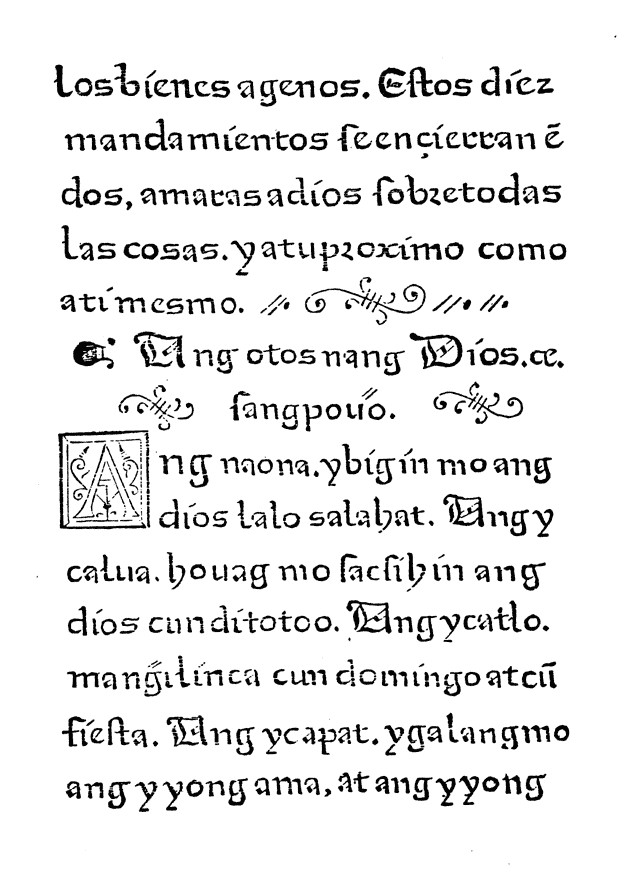 los bienes agenos. Estos diez
mandamientos se ençierran ẽ
dos, amaras a dios sobre todas
las cosas. y a tu proximo como
a ti mesmo.
Ang otos nang Dios. ce.
sang pouo.
Ang naona. ybig in mo ang
dios lalo sa lahat. Ang y
calua. houag mo sacsihin ang
dios cun di totoo. Ang ycatlo.
mangilin ca cun domingo at cũ
fiesta. Ang ycapat. ygalang mo
ang yyong ama, at ang yyong